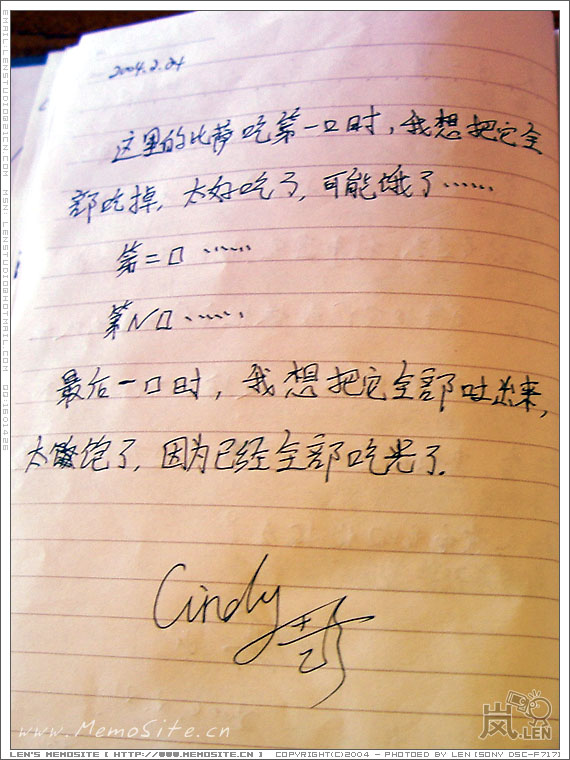 2004.2.24
这里的比萨吃第一口时，我想把它全
部吃掉，太好吃了，可能饿了……
第二口……
第N口……
最后一口时，我想把它全部吐出来，
太饱了，因为已经全部吃光了.
Cindy
www.MemoSite.cn
岚.LEN
LEN'S MEMOSITE [ HTTP://WWW.MEMOSITE.CN ] COPYRIGHT(C)2004 - PHOTOED BY LEN [SONY DSC-F717]
EMAIL:LENSTUDIO@21CN.COM MSN: LENSTUDIO@HOTMAIL.COM